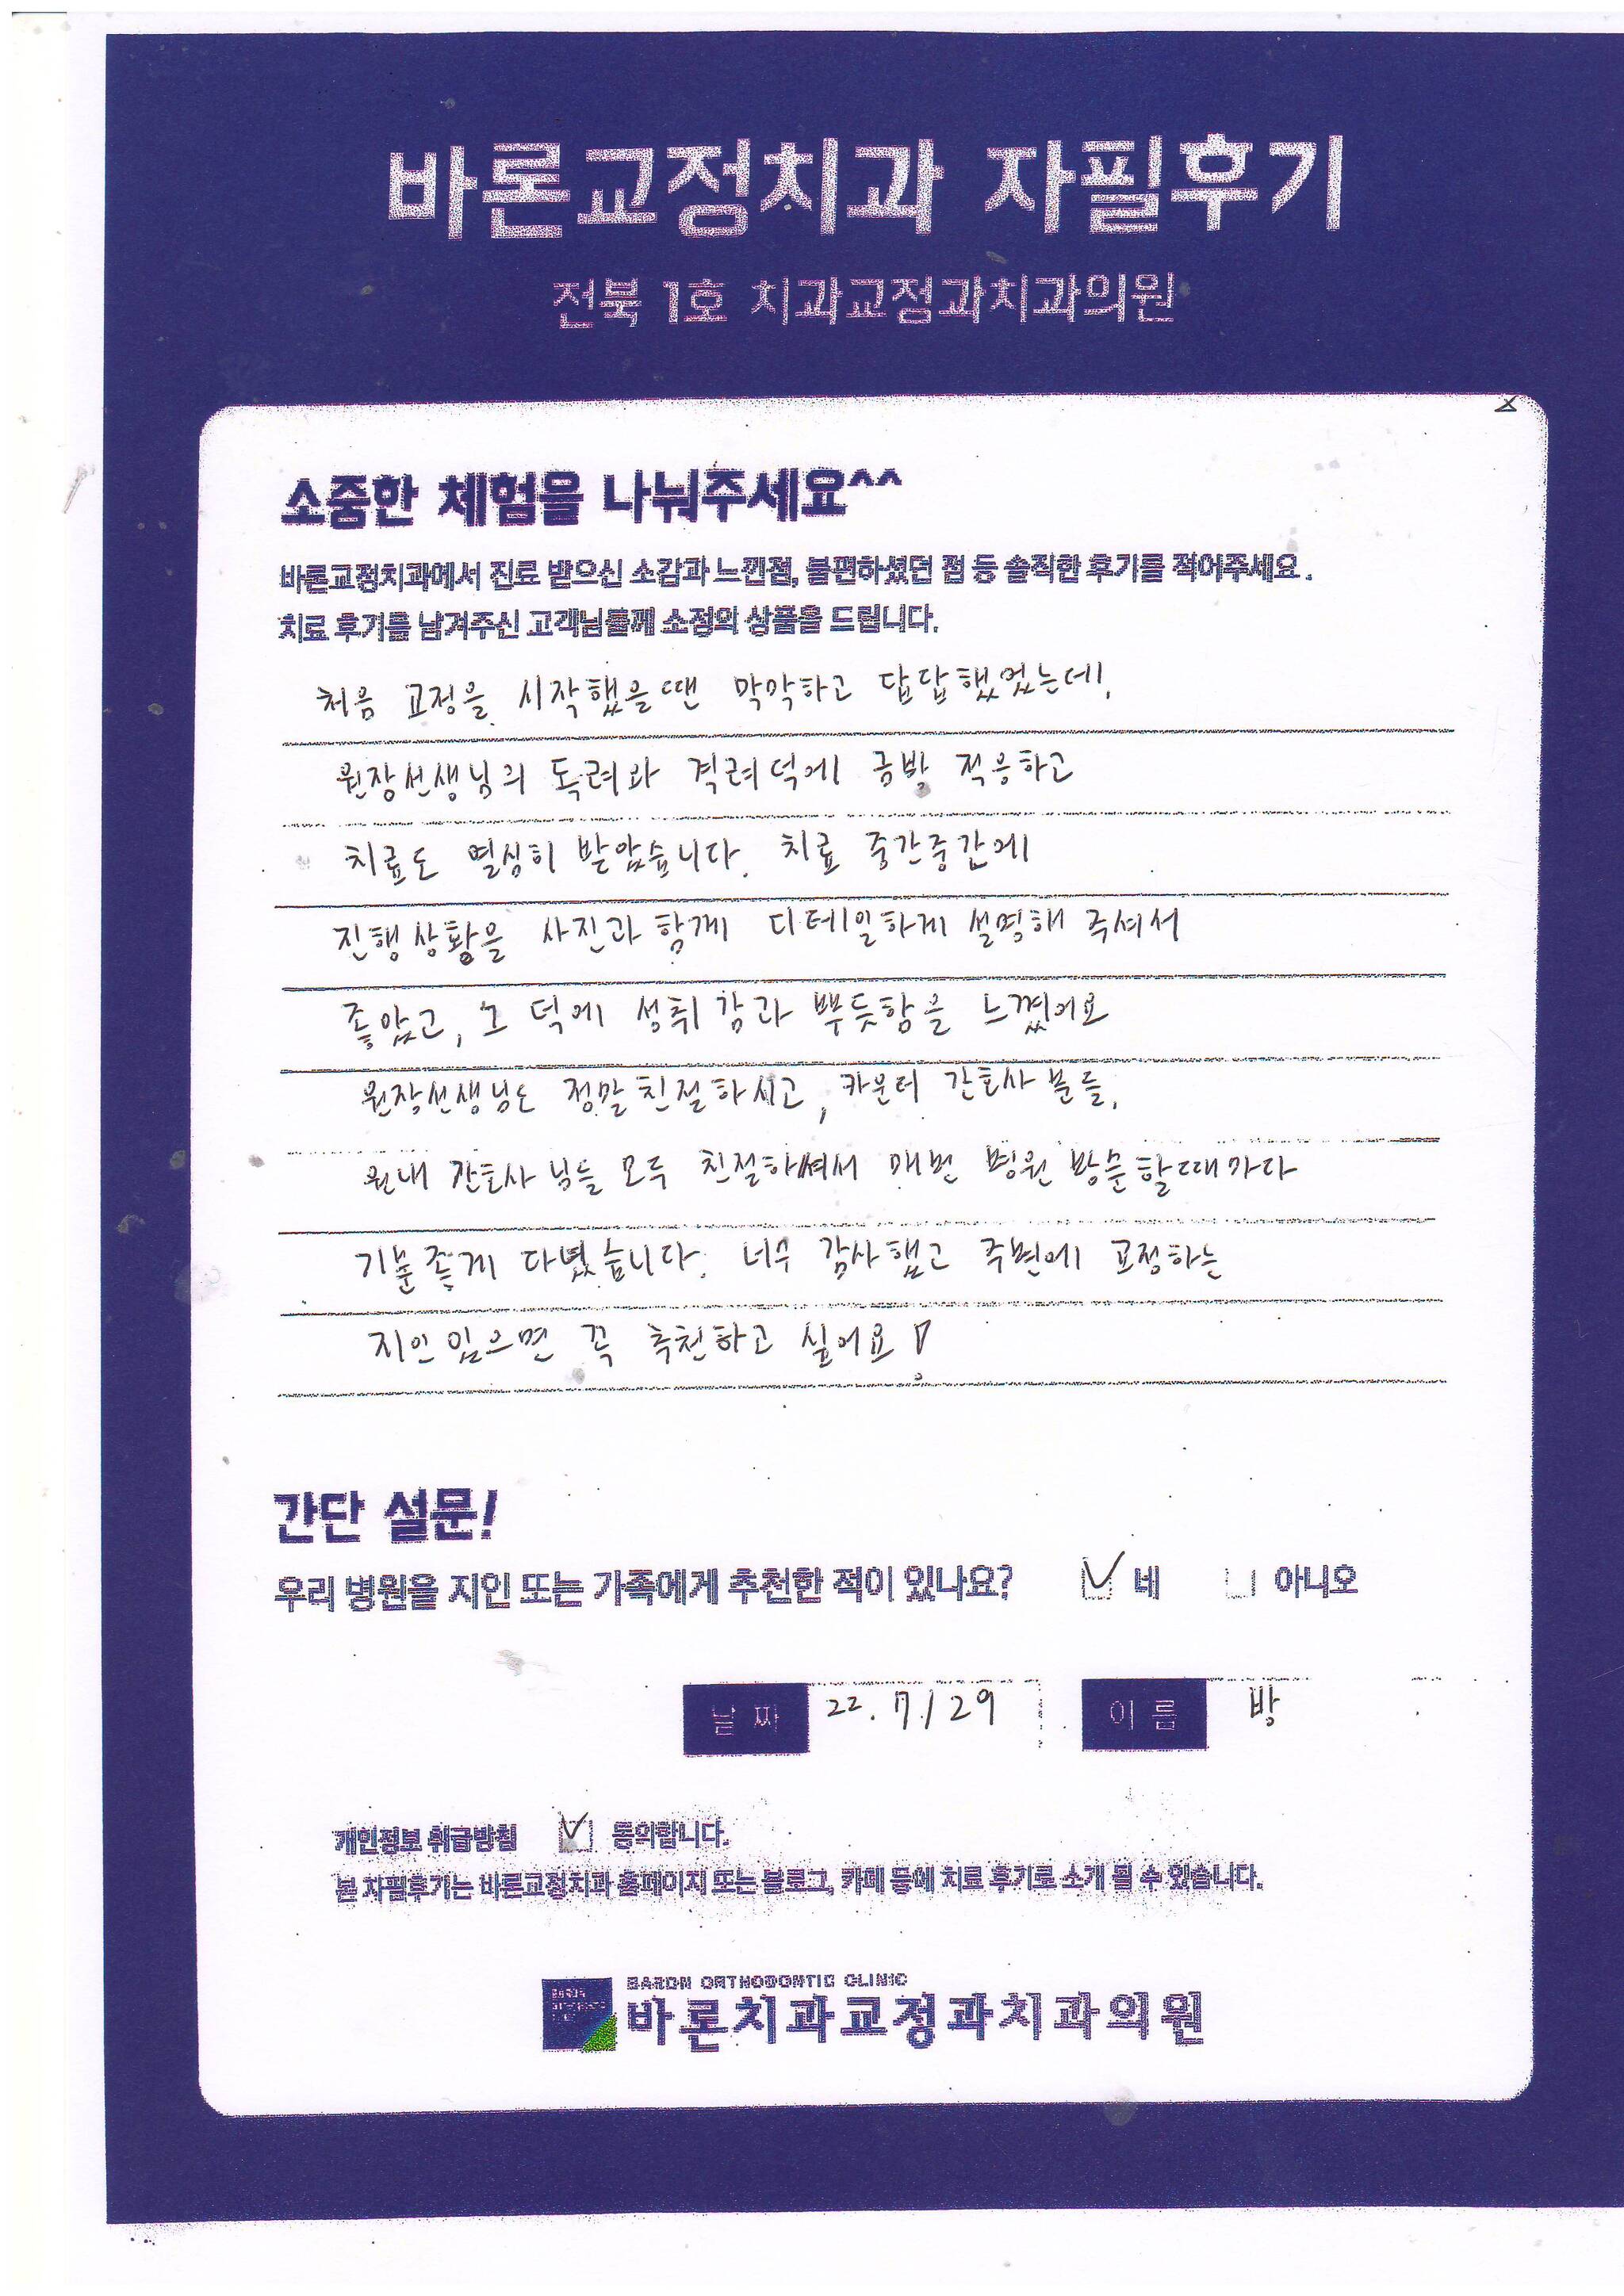 바론교정치과 자필후기
전북 1호 치과교정과치과의원
소중한 체험을 나눠주세요^^
바론교정치과에서 진료 받으신 소감과 느낀점, 불편하셨던 점 등 솔직한 후기를 적어주세요.
치료 후기를 남겨주신 고객님들께 소정의 상품을 드립니다.
처음 교정을 시작했을땐 막막하고 답답했었는데,
원장선생님의 독려와 격려덕에 금방 적응하고
치료도 열심히 받았습니다. 치료 중간중간에
진행상황을 사진과 함께 디테일하게 설명해 주셔서
좋았고, 그 덕에 성취감과 뿌듯함을 느꼈어요
원장선생님도 정말 친절하시고, 카운터 간호사 분들,
원내 간호사 님들 모두 친절하셔서 매번 병원 방문할때마다
기분좋게 다녔습니다. 너무 감사했고 주변에 교정하는
지인있으면 꼭 추천하고 싶어요!
간단 설문!
우리 병원을 지인 또는 가족에게 추천한 적이 있나요? 네 아니오
날짜 22. 7/29 이름 방
개인정보 취급방침 동의합니다.
본 자필후기는 바른교정치과 홈페이지 또는 블로그, 카페 등에 치료 후기로 소개 될 수 있습니다.
BARON ORTHODONTIC CLINIC
바론치과교정과치과의원